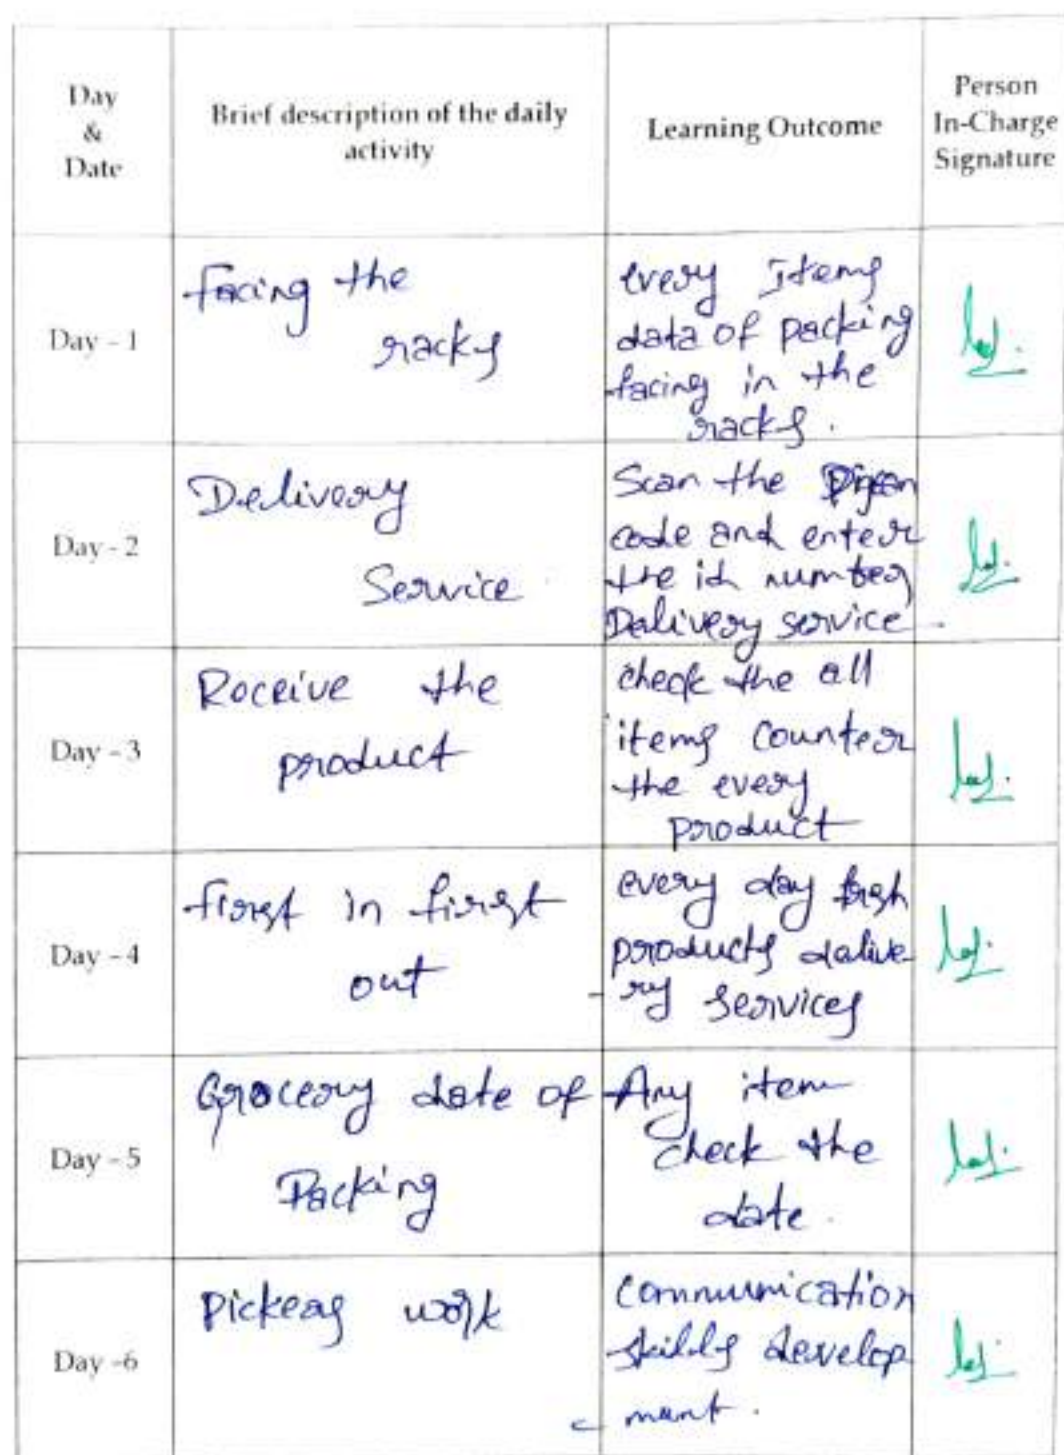 Day
&
Date
Brief description of the daily
activity
Learning Outcome
Person
In-Charge
Signature
Day - 1
facing the
racks
every Items
data of packing
facing in the
racks.
Day - 2
Delivery
Service
Scan the
code and enter
the id number
Delivery service.
Day - 3
Roceive the
product
check the all
items counter
the every
product
Day - 4
first in first
out
every day
products dalive-
ry services
Day - 5
Grocery date of
Packing
Any item
check the
date.
Day -6
Pickers work
communication
skills develop
- ment.